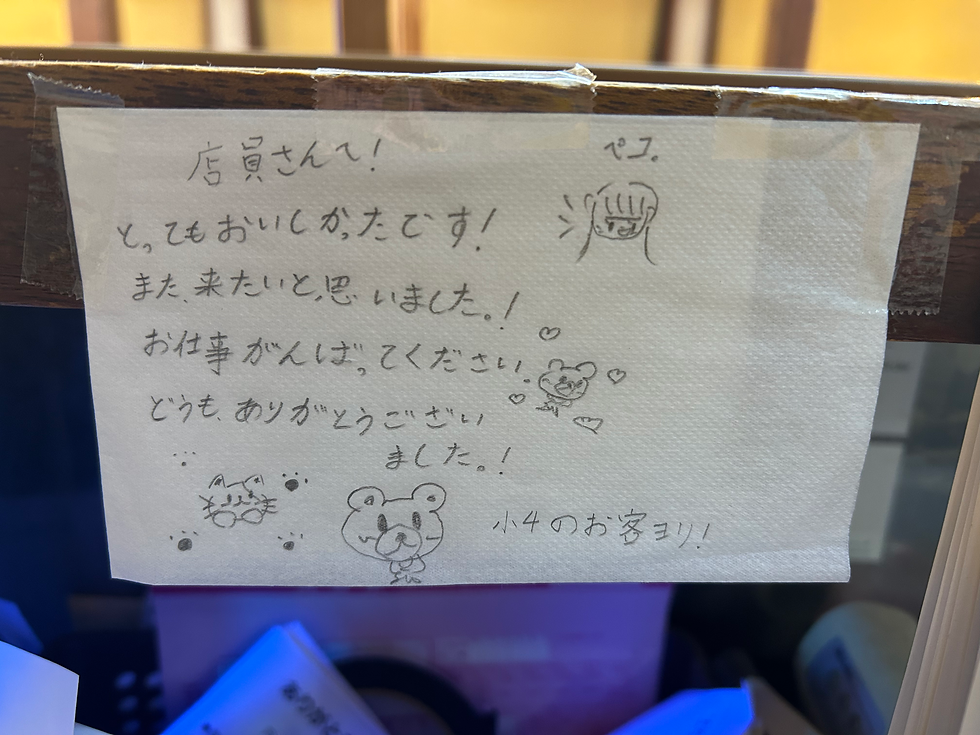 店員さんへ!
ペコ。
とってもおいしかったです!
また、来たいと、思いました。!
お仕事がんばってください。
どうも、ありがとうござい
ました。!
小4のお客ヨリ!